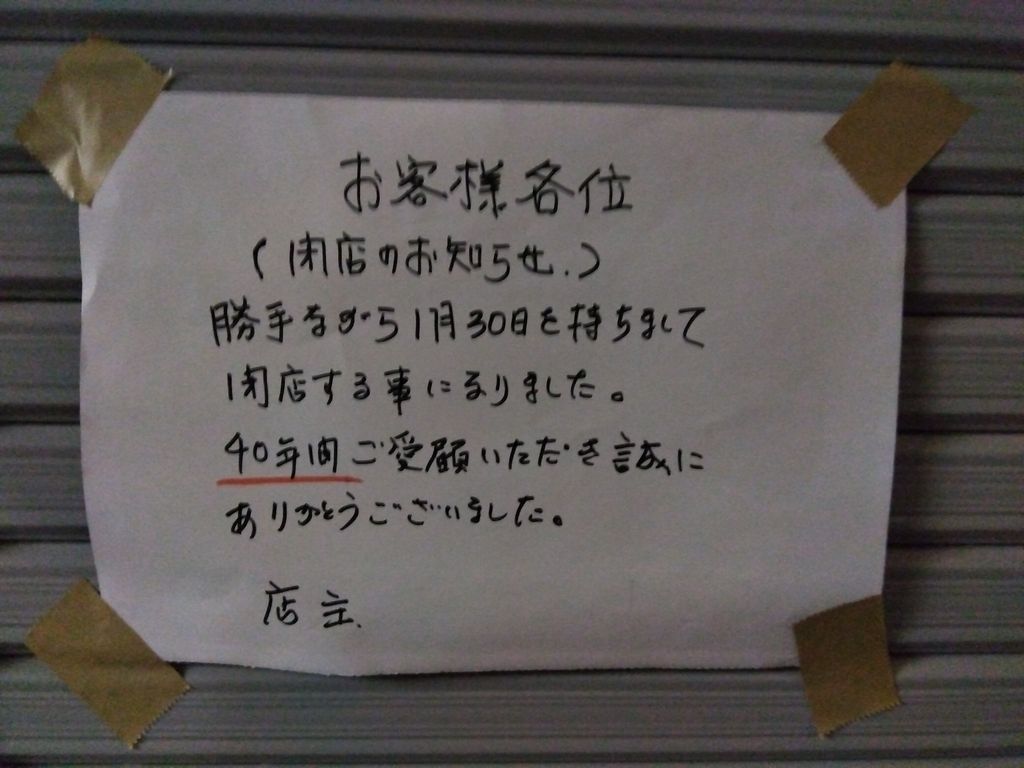 お客様各位
(閉店のお知らせ.)
勝手ながら1月30日を持ちまして
閉店する事になりました。
40年間ご受顧いただき誠に
ありがとうございました。
店主.